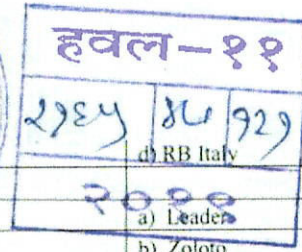 हवल-११
२१६५ १२१
d) RB Italy
२०११
a) Leaders
b) Zoloto